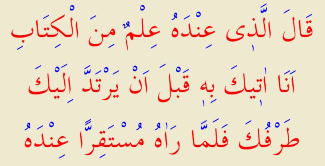 قَالَ الَّذٖى عِنْدَهُ عِلْمٌ مِنَ الْكِتَابِ
اَنَا اٰتٖيكَ بِهٖ قَبْلَ اَنْ يَرْتَدَّ اِلَيْكَ
طَرْفُكَ فَلَمَّا رَاٰهُ مُسْتَقِرًّا عِنْدَهُ